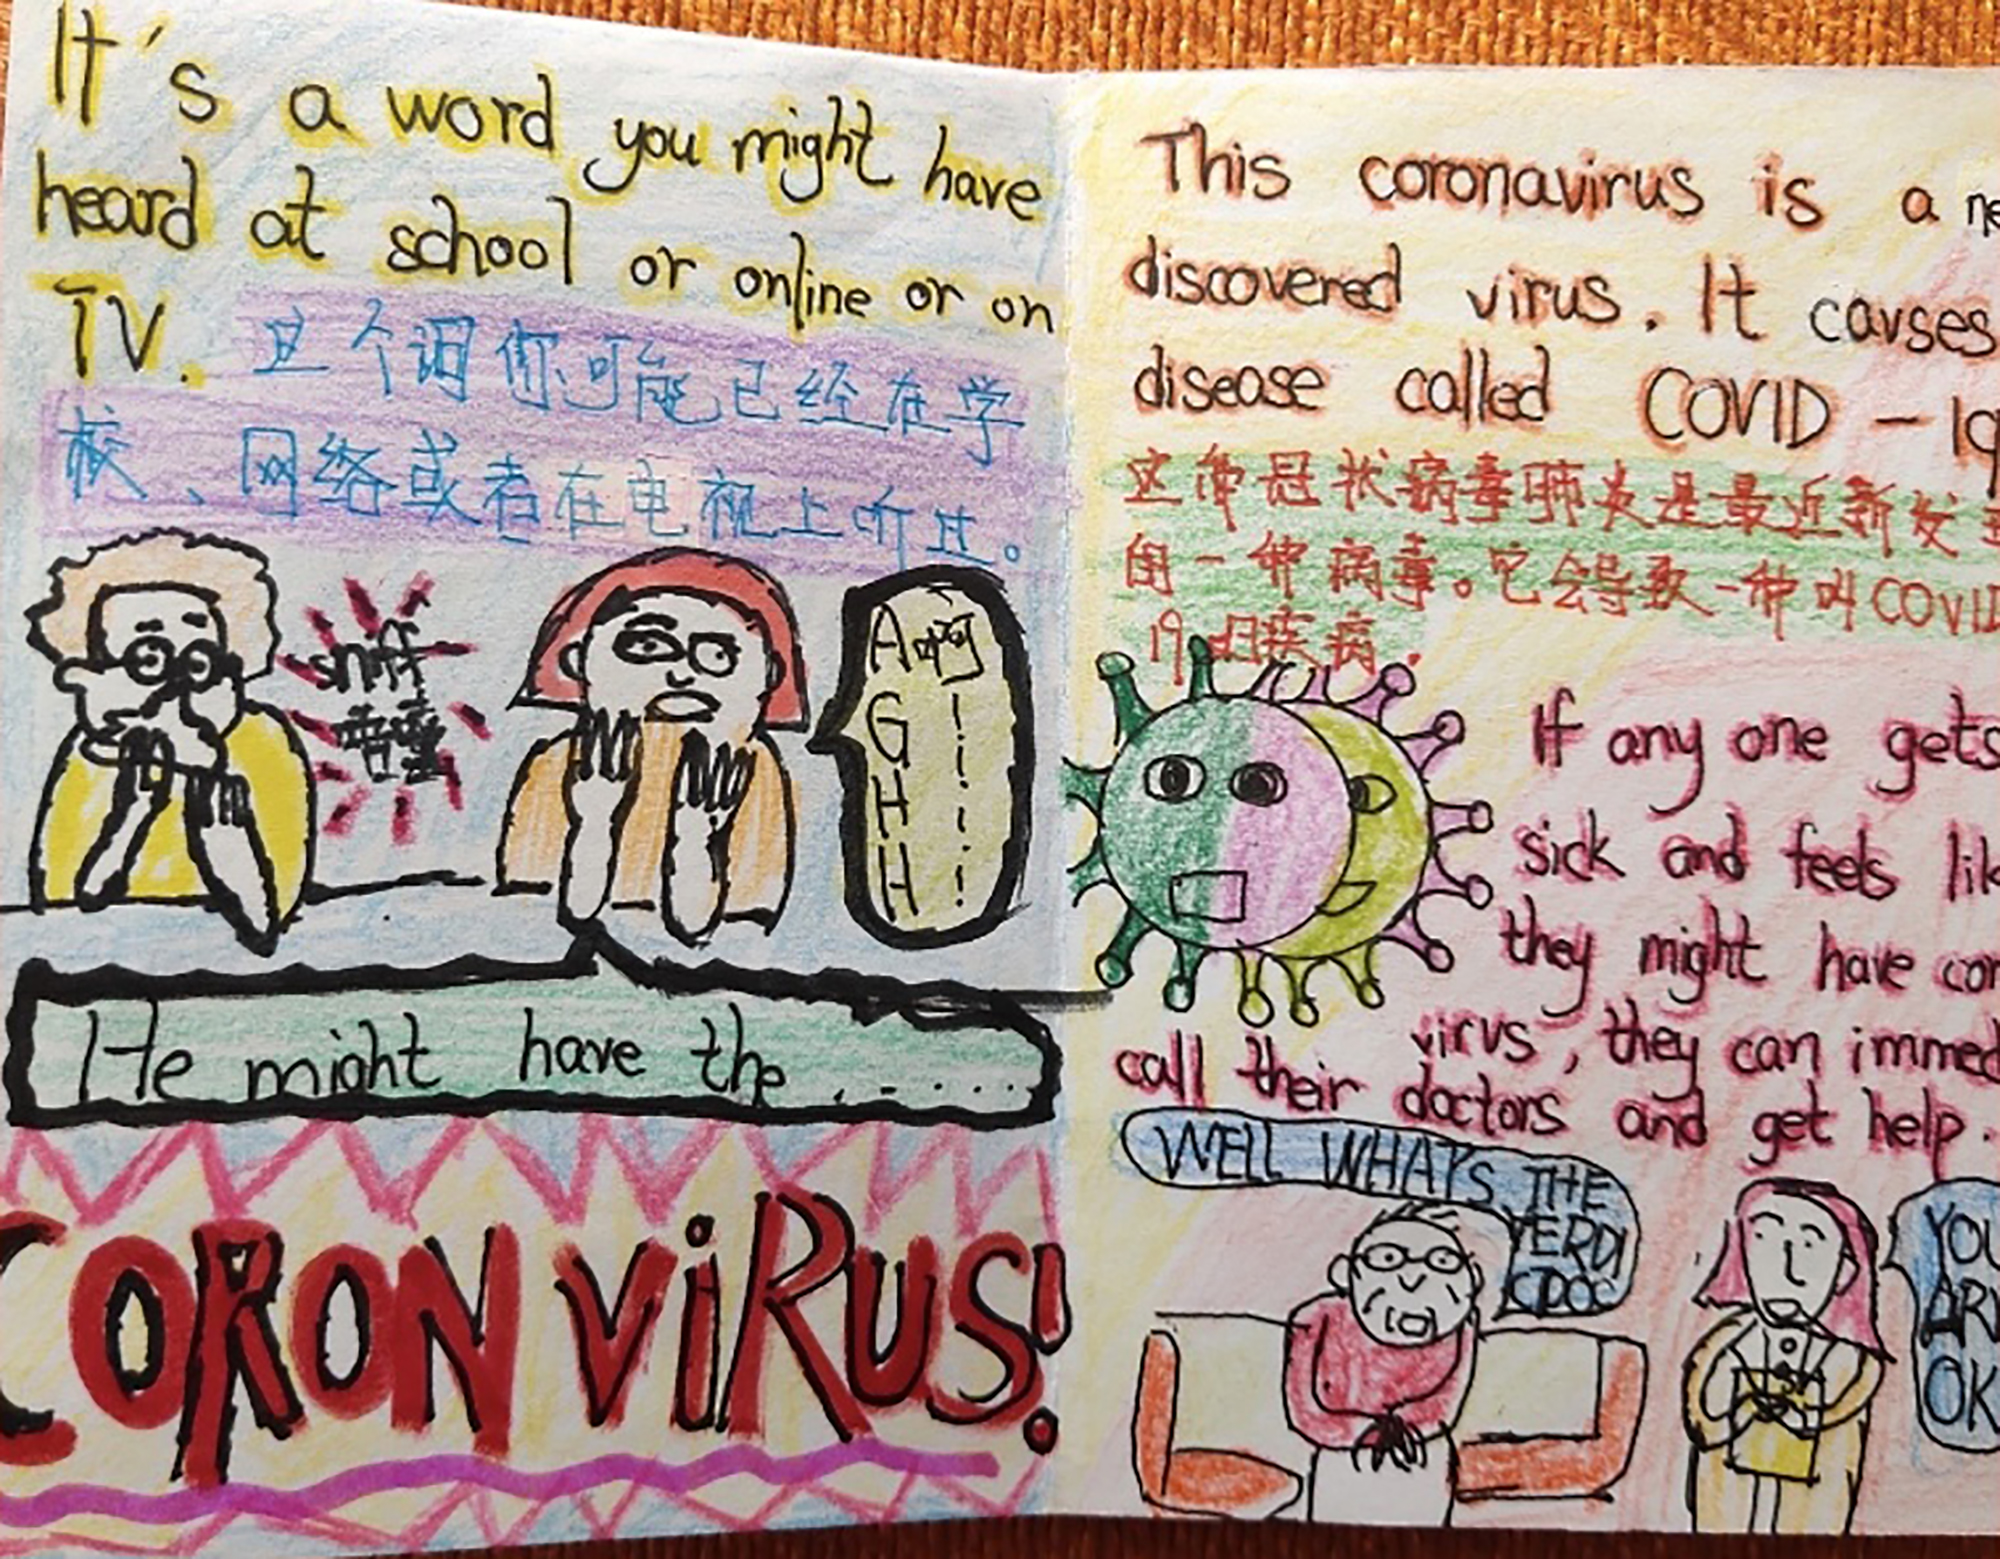 It's a word you might have
heard at school or online or on
TV. 这个词你可能已经在学
校、网络或者在电视上听过。
sniff
A 啊
G !
H !
H !
He might have the......
CORONVIRUS!
This coronavirus is a
discovered virus. It causes
disease called COVID-19
这种冠状病毒肺炎是最近新发
的一种病毒。它会导致一种叫COVID
19的疾病.
If any one gets
sick and feels
they might have
virus, they can
call their doctors and get help.
WELL WHAT'S THE
VERDI
CDOC
YOU
OK